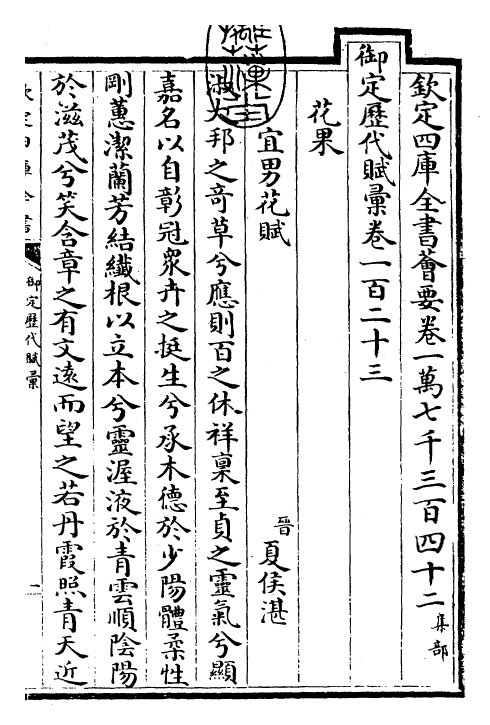 欽定四庫全書薈要卷一萬七千三百四十二 集部
御定歷代賦彙卷一百二十三
花果
宜男花賦 晉 夏侯湛
淑大邦之竒草兮應則百之休祥稟至貞之靈氣兮顯
嘉名以自彰冠衆卉之挺生兮承木德於少陽體柔性
剛蕙潔蘭芳結纖根以立本兮靈渥液於青雲順陰陽
於滋茂兮笑含章之有文遠而望之若丹霞照青天近
欽定四庫全書 御定歷代賦彙 一